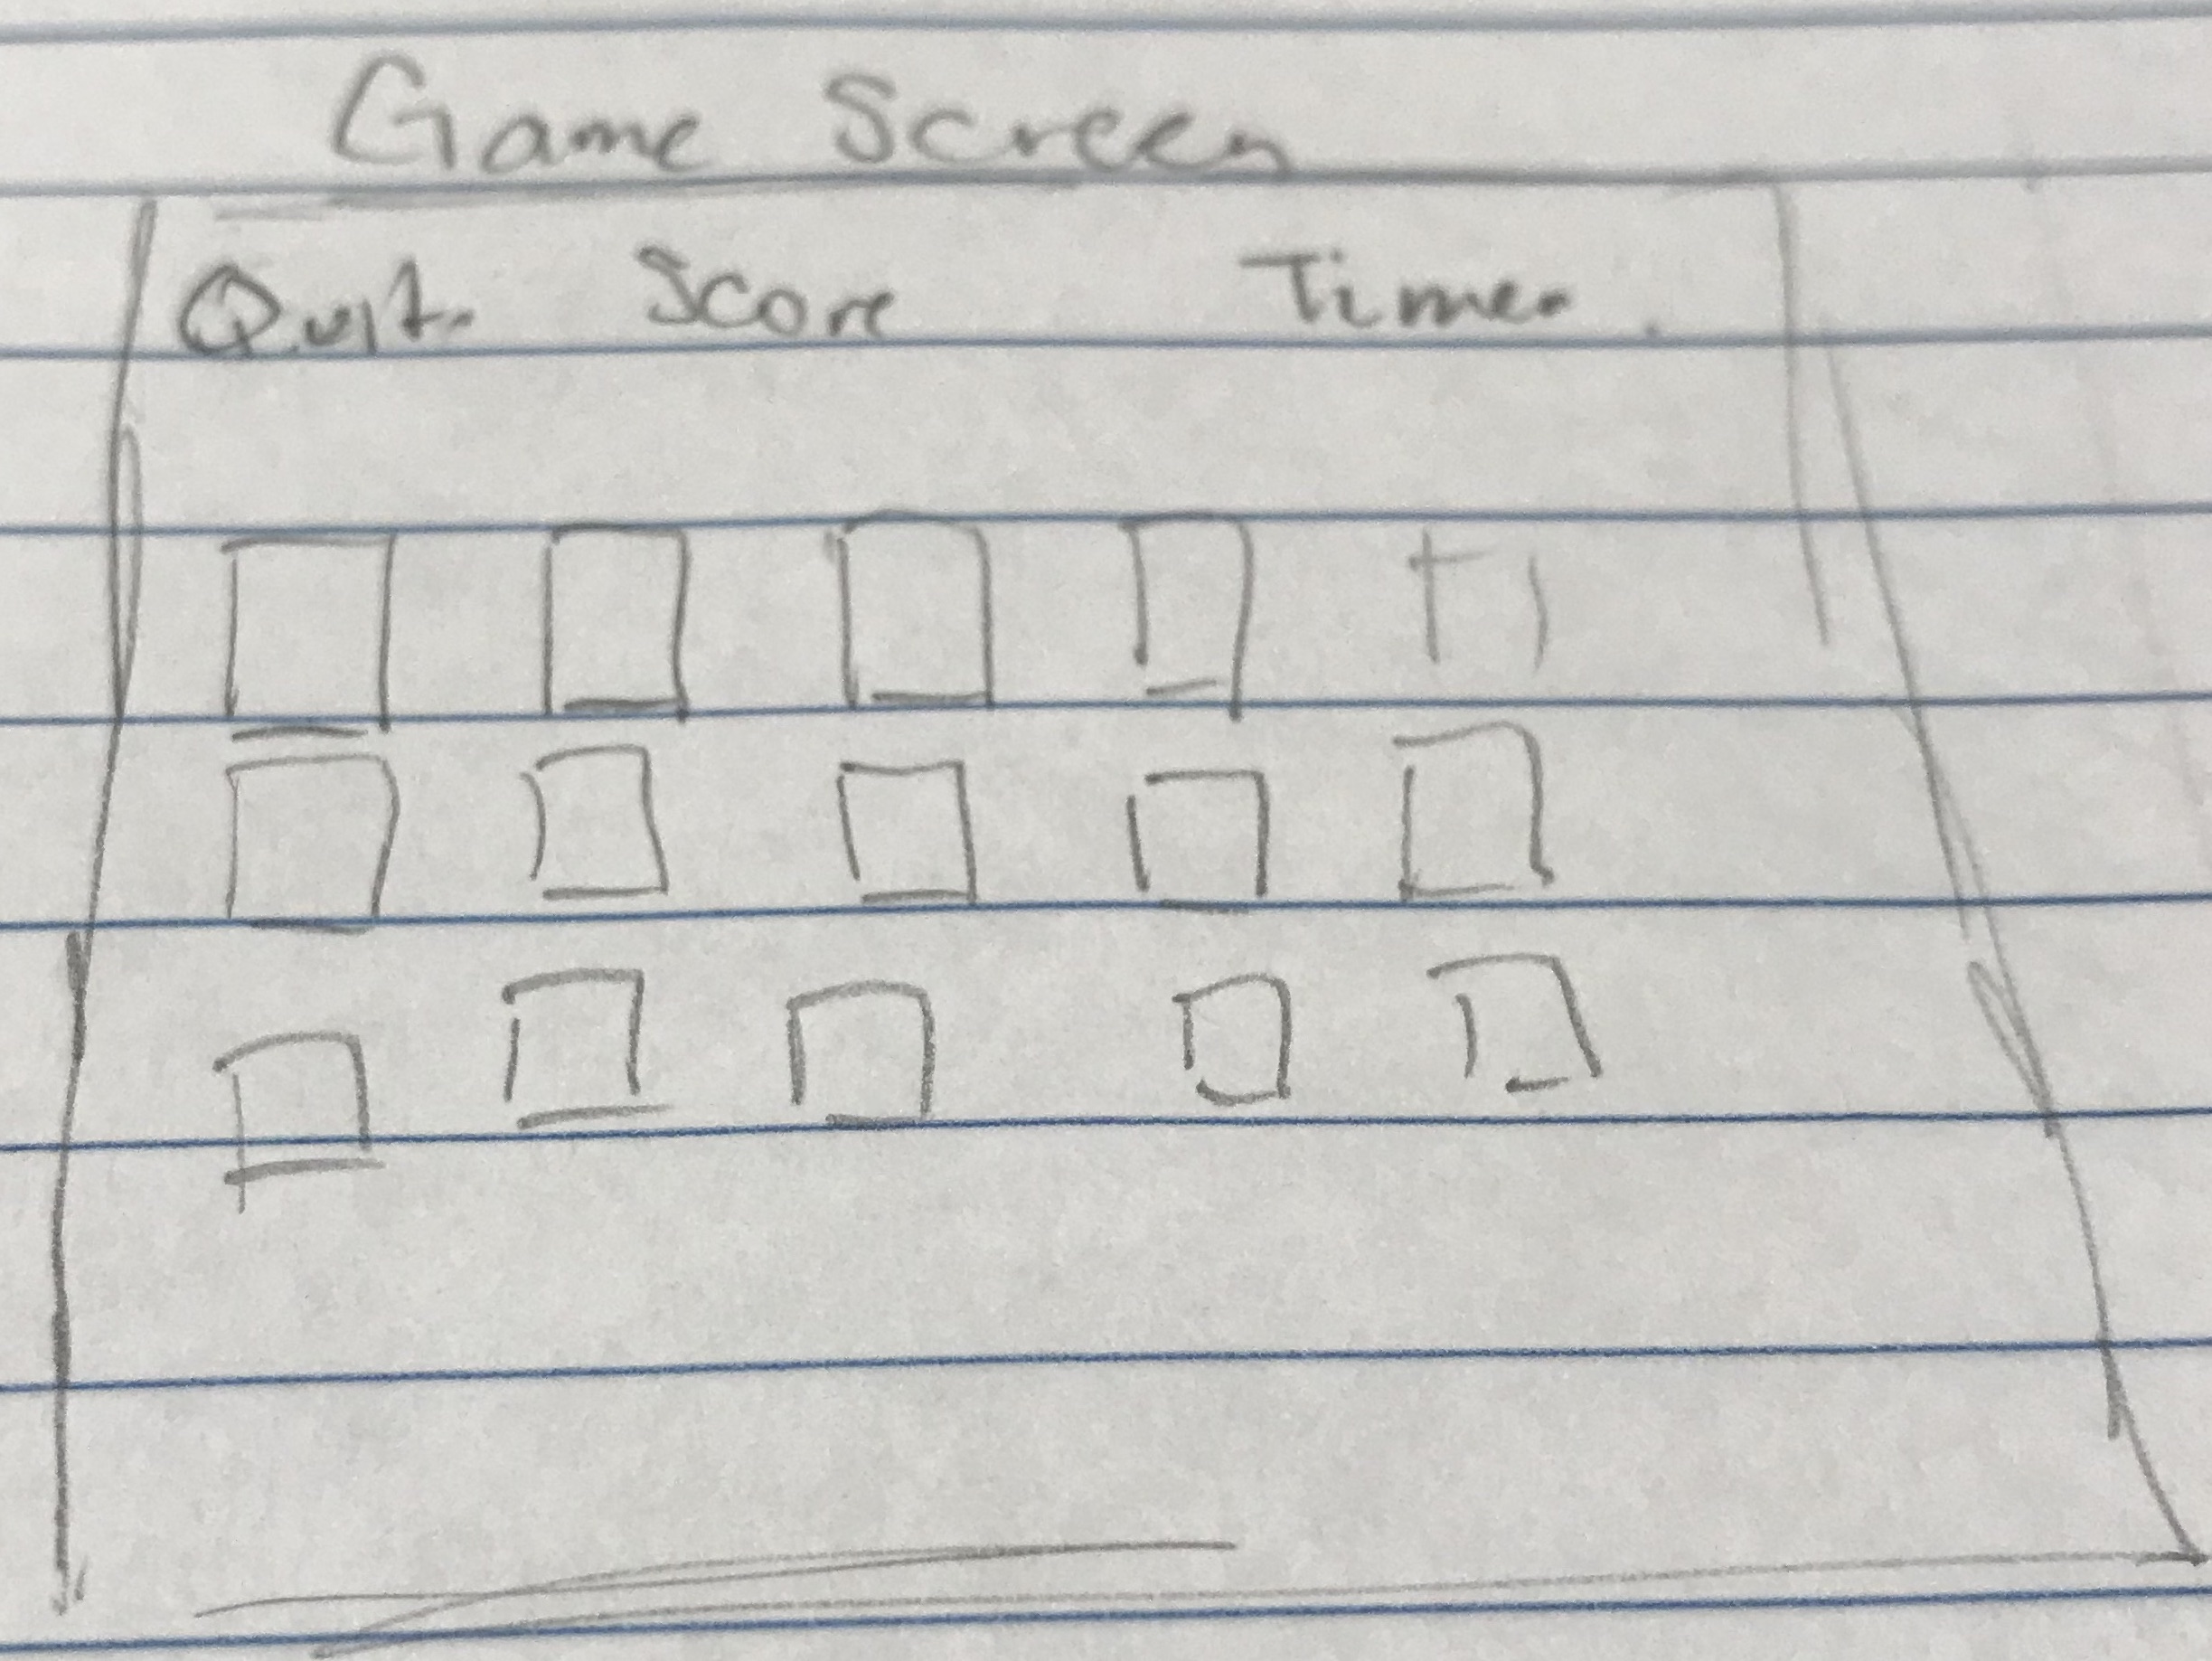 Game Screen
Quit Score Timer